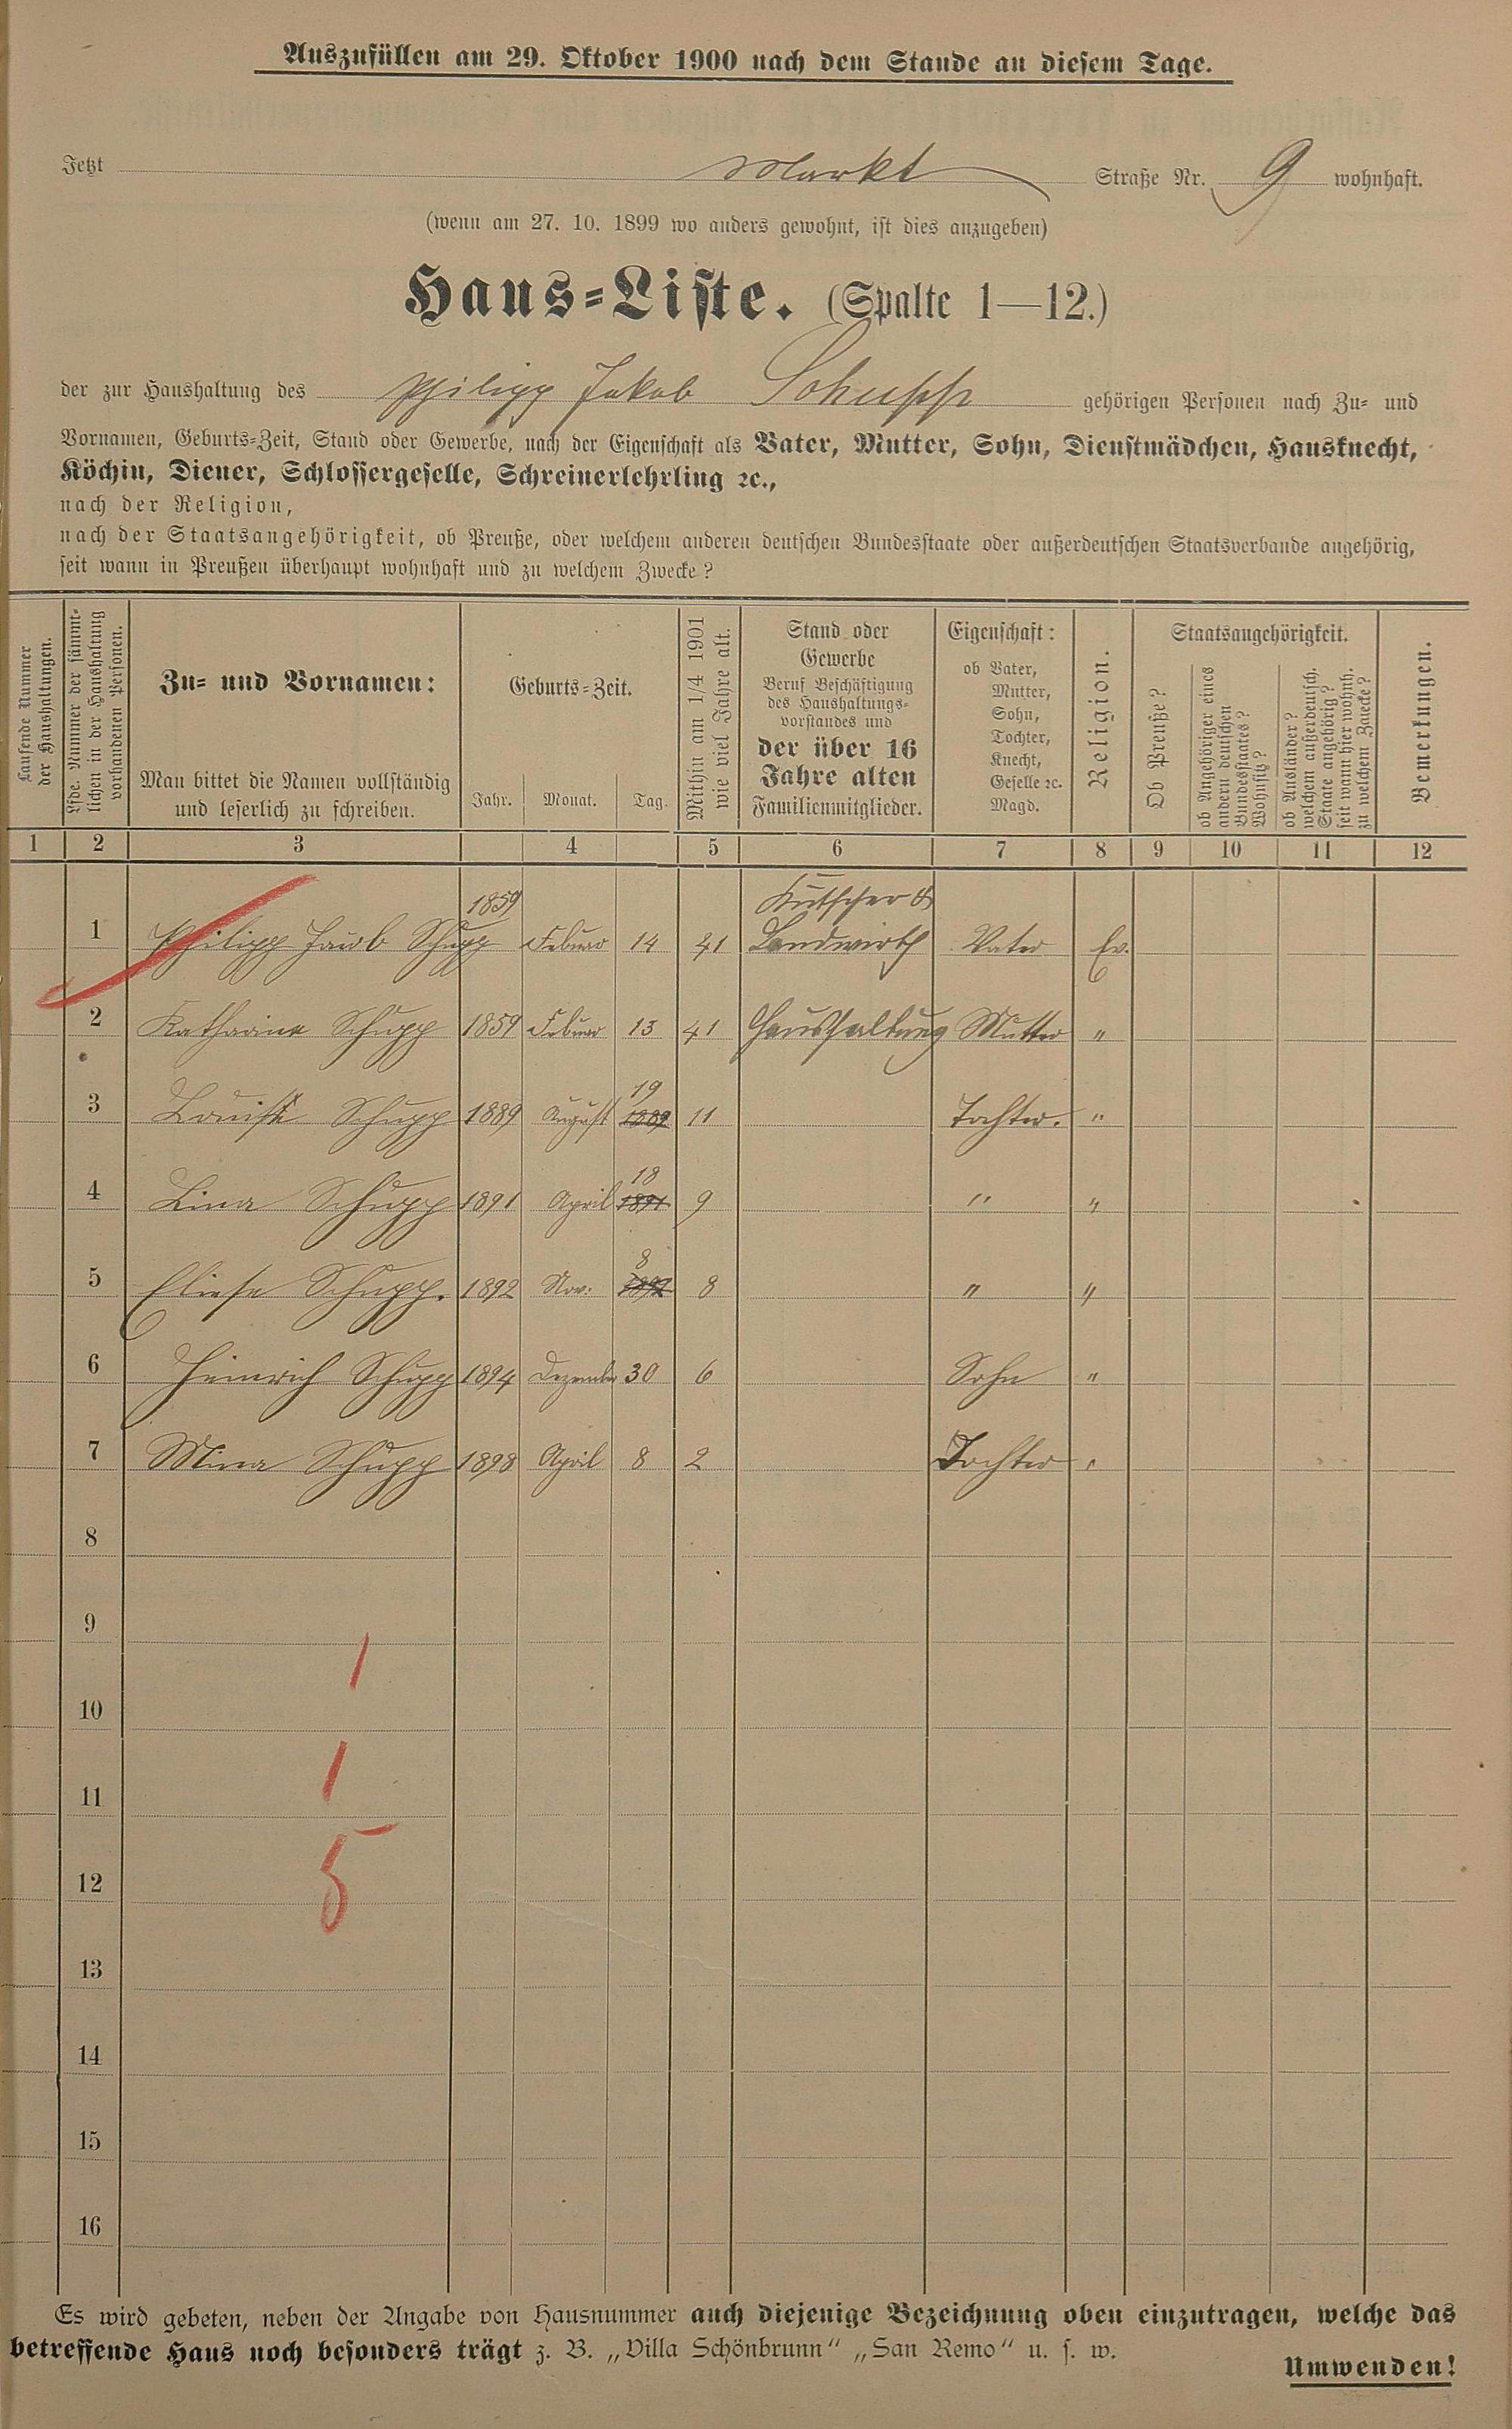 Auszufüllen am 29. Oktober 1900 nach dem Stande an diesem Tage.
Jetzt Markt Straße Nr. 9 wohnhaft.
(wenn am 27. 10. 1899 wo anders gewohnt, ist dies anzugeben)
Haus-Liste. (Spalte 1—12.)
der zur Haushaltung des Philipp Jakob Schupp gehörigen Personen nach Zu- und
Vornamen, Geburts-Zeit, Stand oder Gewerbe, nach der Eigenschaft als Vater, Mutter, Sohn, Dienstmädchen, Hausknecht,
Köchin, Diener, Schlossergeselle, Schreinerlehrling ꝛc.,
nach der Religion,
nach der Staatsangehörigkeit, ob Preuße, oder welchem anderen deutschen Bundesstaate oder außerdeutschen Staatsverbande angehörig,
seit wann in Preußen überhaupt wohnhaft und zu welchem Zwecke?
Laufende Nummer
der Haushaltungen.
Lfde. Nummer der sämmt-
lichen in der Haushaltung
vorhandenen Personen.
Zu- und Vornamen:
Man bittet die Namen vollständig
und leserlich zu schreiben.
Geburts-Zeit.
Jahr. Monat. Tag.
Mithin am 1/4 1901
wie viel Jahre alt.
Stand oder
Gewerbe
Beruf Beschäftigung
des Haushaltungs-
vorstandes und
der über 16
Jahre alten
Familienmitglieder.
Eigenschaft:
ob Vater,
Mutter,
Sohn,
Tochter,
Knecht,
Geselle ꝛc.
Magd.
Religion.
Staatsangehörigkeit.
Ob Preuße?
ob Angehöriger eines
andern deutschen
Bundesstaates?
Wohnsitz?
ob Ausländer?
welchem außerdeutsch.
Staate angehörig?
seit wann hier wohnh.
zu welchem Zwecke?
Bemerkungen.
1 2 3 4 5 6 7 8 9 10 11 12
1859 Kutscher &
1 Philipp Jacob Schupp Februar 14 41 Landwirth Vater Ev.
2 Katharina Schupp 1859 Februar 13 41 Haushaltung Mutter "
19
3 Louise Schupp 1889 August 1889 11 Tochter. "
18
4 Lina Schupp 1891 April 1891 9 " "
8
5 Eliese Schupp. 1892 Nov: 1892 8 " "
6 Heinrich Schupp 1894 Dezember 30 6 Sohn "
7 Mina Schupp 1898 April 8 2 Tochter "
8
9
1
10
1
11
5
12
13
14
15
16
Es wird gebeten, neben der Angabe von Hausnummer auch diejenige Bezeichnung oben einzutragen, welche das
betreffende Haus noch besonders trägt z. B. „Villa Schönbrunn“ „San Remo“ u. s. w.
Umwenden!